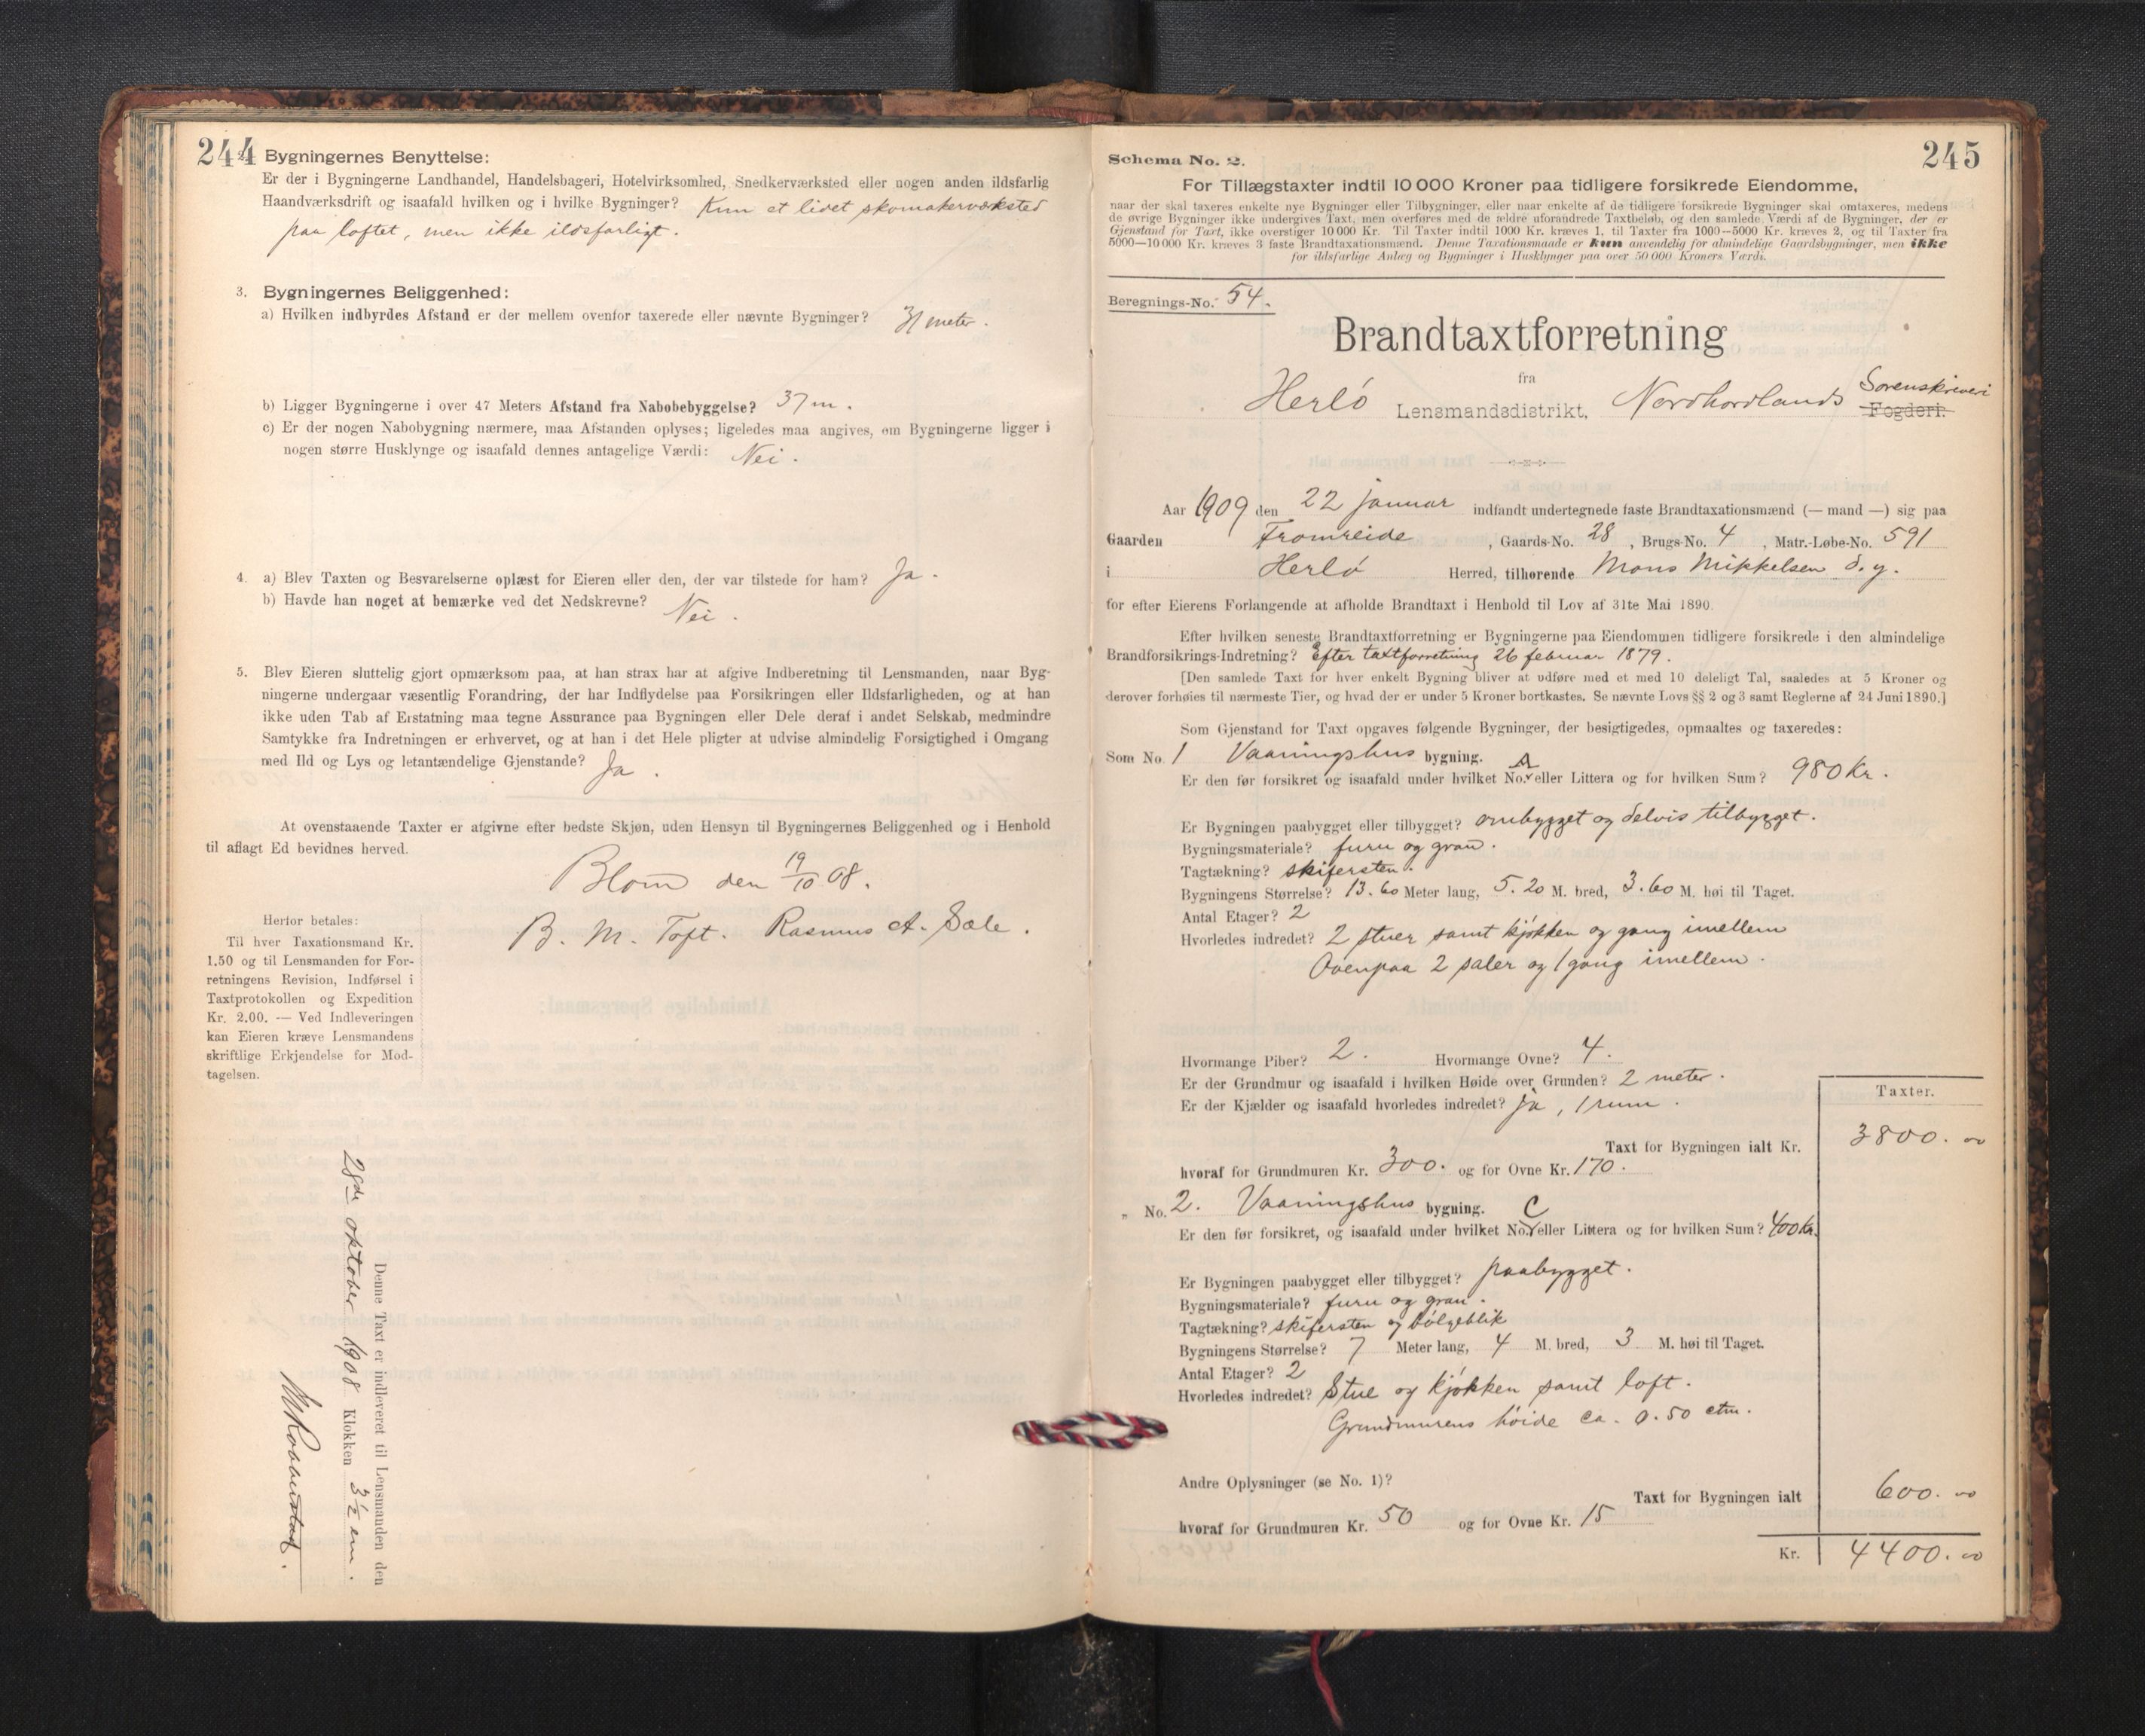 244
2. Bygningernes Benyttelse:
Er der i Bygningerne Landhandel, Handelsbageri, Hotelvirksomhed, Snedkerværksted eller nogen anden ildsfarlig
Haandværksdrift og isaafald hvilken og i hvilke Bygninger? Kun et lidet skomakerværksted
paa loftet, men ikke ildsfarligt.
3. Bygningernes Beliggenhed:
a) Hvilken indbyrdes Afstand er der mellem ovenfor taxerede eller nævnte Bygninger? 31 meter.
b) Ligger Bygningerne i over 47 Meters Afstand fra Nabobebyggelse? 37 m.
c) Er der nogen Nabobygning nærmere, maa Afstanden oplyses; ligeledes maa angives, om Bygningerne ligger i
nogen større Husklynge og isaafald dennes antagelige Værdi: Nei.
4. a) Blev Taxten og Besvarelserne oplæst for Eieren eller den, der var tilstede for ham? Ja.
b) Havde han noget at bemærke ved det Nedskrevne? Nei.
5. Blev Eieren sluttelig gjort opmærksom paa, at han strax har at afgive Indberetning til Lensmanden, naar Byg-
ningerne undergaar væsentlig Forandring, der har Indflydelse paa Forsikringen eller Ildsfarligheden, og at han
ikke uden Tab af Erstatning maa tegne Assurance paa Bygningen eller Dele deraf i andet Selskab, medmindre
Samtykke fra Indretningen er erhvervet, og at han i det Hele pligter at udvise almindelig Forsigtighed i Omgang
med Ild og Lys og letantændelige Gjenstande? Ja.
At ovenstaaende Taxter er afgivne efter bedste Skjøn, uden Hensyn til Bygningernes Beliggenhed og i Henhold
til aflagt Ed bevidnes herved.
Blom den 19/10 08.
B. M. Toft. Rasmus A. Sæle.
Herfor betales:
Til hver Taxationsmand Kr.
1.50 og til Lensmanden for For-
retningens Revision, Indførsel i
Taxtprotokollen og Expedition
Kr. 2.00. — Ved Indleveringen
kan Eieren kræve Lensmandens
skriftlige Erkjendelse for Mod-
tagelsen.
Denne Taxt er indleveret til Lensmanden den
28de oktober 1908 Klokken 3½ em.
245
Schema No. 2.
For Tillægstaxter indtil 10 000 Kroner paa tidligere forsikrede Eiendomme,
naar der skal taxeres enkelte nye Bygninger eller Tilbygninger, eller naar enkelte af de tidligere forsikrede Bygninger skal omtaxeres, medens
de øvrige Bygninger ikke undergives Taxt, men overføres med de ældre uforandrede Taxtbeløb, og den samlede Værdi af de Bygninger, der er
Gjenstand for Taxt, ikke overstiger 10 000 Kr. Til Taxter indtil 1000 Kr. kræves 1, til Taxter fra 1000—5000 Kr. kræves 2, og til Taxter fra
5000—10 000 Kr. kræves 3 faste Brandtaxationsmænd. Denne Taxationsmaade er kun anvendelig for almindelige Gaardsbygninger, men ikke
for ildsfarlige Anlæg og Bygninger i Husklynger paa over 50 000 Kroners Værdi.
Beregnings-No. 54.
Brandtaxtforretning
fra
Herlö Lensmandsdistrikt, Nordhordlands Sorenskriveri Fogderi.
Aar 1909 den 22 januar indfandt undertegnede faste Brandtaxationsmænd (— mand —) sig paa
Gaarden Fromreide, Gaards-No. 28, Brugs-No. 4, Matr.-Løbe-No. 591
i Herlö Herred, tilhørende Mons Mikkelsen d. y.
for efter Eierens Forlangende at afholde Brandtaxt i Henhold til Lov af 31te Mai 1890.
Efter hvilken seneste Brandtaxtforretning er Bygningerne paa Eiendommen tidligere forsikrede i den almindelige
Brandforsikrings-Indretning? Efter taxtforretning 26 februar 1879.
[Den samlede Taxt for hver enkelt Bygning bliver at udføre med et med 10 deleligt Tal, saaledes at 5 Kroner og
derover forhøies til nærmeste Tier, og hvad der er under 5 Kroner bortkastes. Se nævnte Lovs §§ 2 og 3 samt Reglerne af 24 Juni 1890.]
Som Gjenstand for Taxt opgaves følgende Bygninger, der besigtigedes, opmaaltes og taxeredes:
Som No. 1 Vaaningshus bygning.
Er den før forsikret og isaafald under hvilket No. eller Littera A og for hvilken Sum? 980 Kr.
Er Bygningen paabygget eller tilbygget? ombygget og delvis tilbygget.
Bygningsmateriale? furu og gran.
Tagtækning? skifersten.
Bygningens Størrelse? 13.60 Meter lang, 5.20 M. bred, 3.60 M. høi til Taget.
Antal Etager? 2
Hvorledes indredet? 2 stuer samt kjökken og gang imellem
Ovenpaa 2 saler og 1 gang imellem.
Hvormange Piber? 2. Hvormange Ovne? 4.
Er der Grundmur og isaafald i hvilken Høide over Grunden? 2 meter.
Er der Kjælder og isaafald hvorledes indredet? ja, 1 rum.
Taxter.
Taxt for Bygningen ialt Kr. 3800.00
hvoraf for Grundmuren Kr. 300. og for Ovne Kr. 170.
" No. 2. Vaaningshus bygning.
Er den før forsikret, og isaafald under hvilket No. eller Littera C og for hvilken Sum? 400 Kr.
Er Bygningen paabygget eller tilbygget? paabygget.
Bygningsmateriale? furu og gran.
Tagtækning? skifersten og bölgeblik
Bygningens Størrelse? 7 Meter lang, 4 M. bred, 3 M. høi til Taget.
Antal Etager? 2
Hvorledes indredet? Stue og kjökken samt loft.
Grundmurens höide ca. 0.50 ctm.
Andre Oplysninger (se No. 1)?
Taxt for Bygningen ialt 600.00
hvoraf for Grundmuren Kr. 50 og for Ovne Kr. 15
Kr. 4400.00